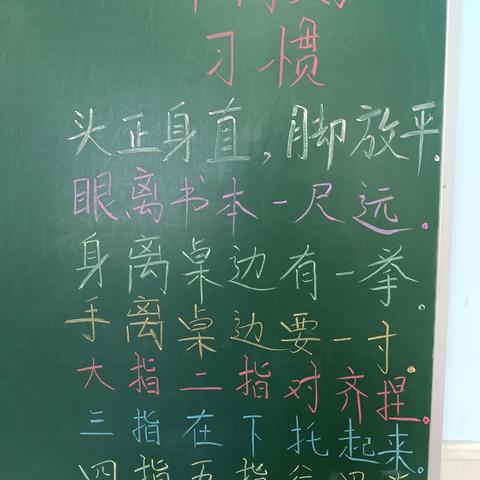 习惯
头正身直，脚放平.
眼离书本一尺远.
身离桌边有一拳.
手离桌边要一寸.
大指二指对齐捏.
三指在下托起来.
四指五指